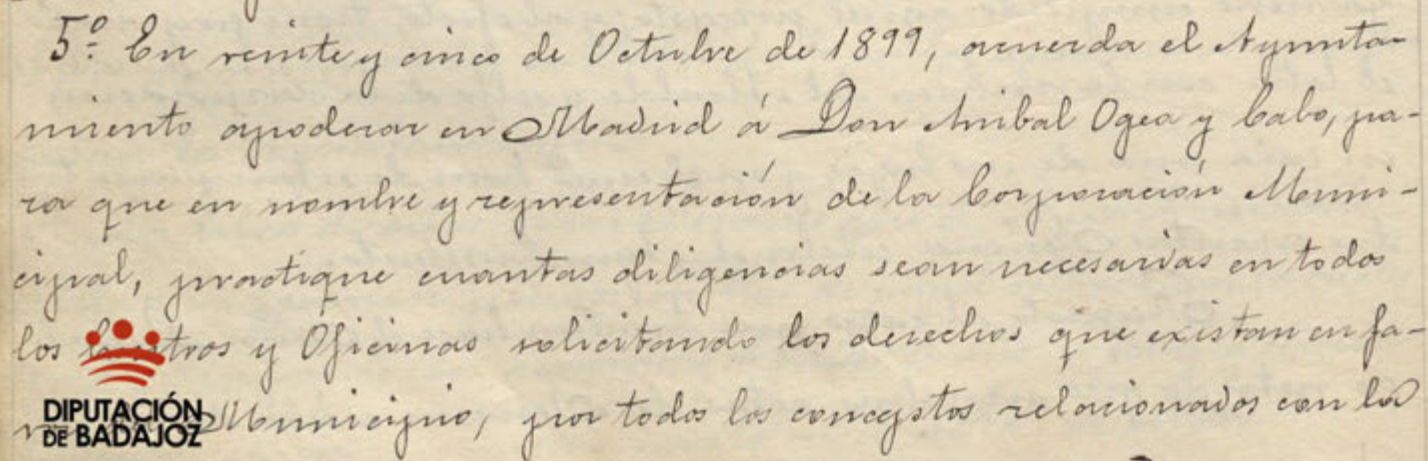 5º En veinte y cinco de Octubre de 1899, acuerda el Ayunta-
miento apoderar en Madrid á Don Anibal Ogea y Cabo, pa-
ra que en nombre y representación de la Corporación Muni-
cipal, practique cuantas diligencias sean necesarias en todos
los y Oficinas solicitando los derechos que existan en fa-
Municipio, por todos los conceptos relacionados con la
DIPUTACIÓN
DE BADAJOZ